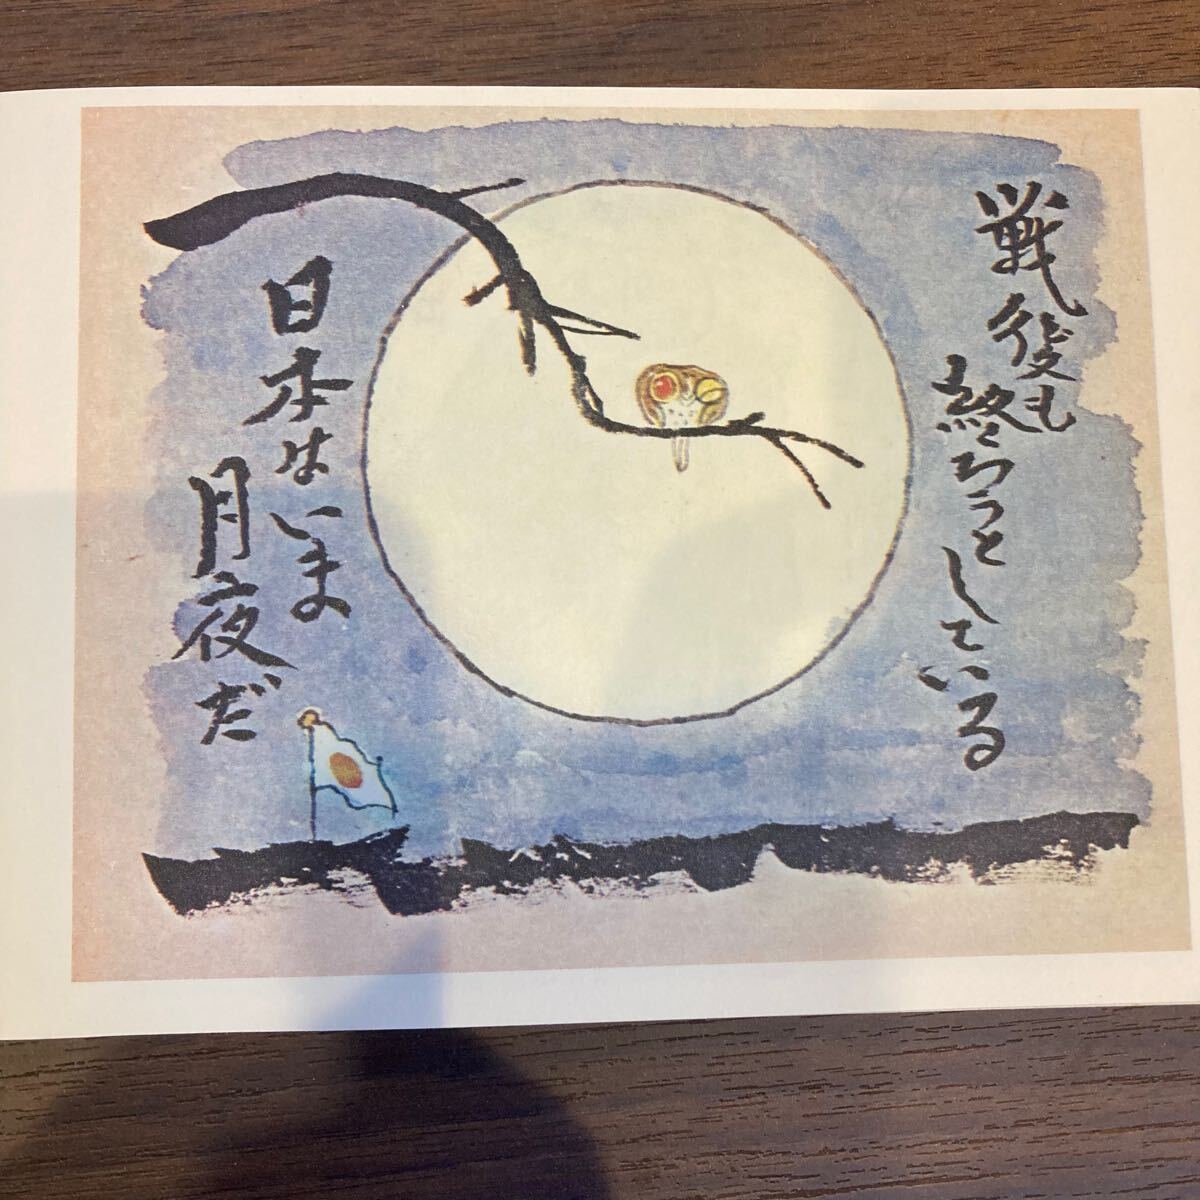 戦後も
終ろうとしている
日本はいま
月夜だ